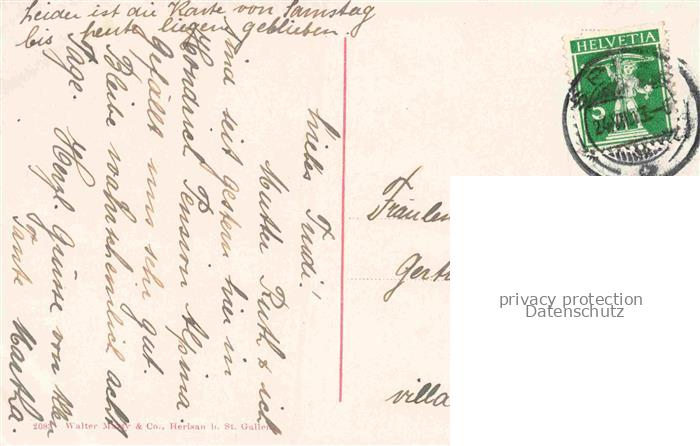 Leider ist die Karte von Samstag
bis heute liegen geblieben.
Liebes Trudi!
Mutti Ruth & ich
sind seit gestern hier in
Hondrich Pension Alpina
Gefällt uns sehr gut.
Bleibe wahrscheinlich acht
Tage. Herzl. Grüsse von
Tante Martha.
HELVETIA
5
Fräulein
Gert
villa
privacy protection
Datenschutz
Walter & Co., Herisau b. St. Gallen